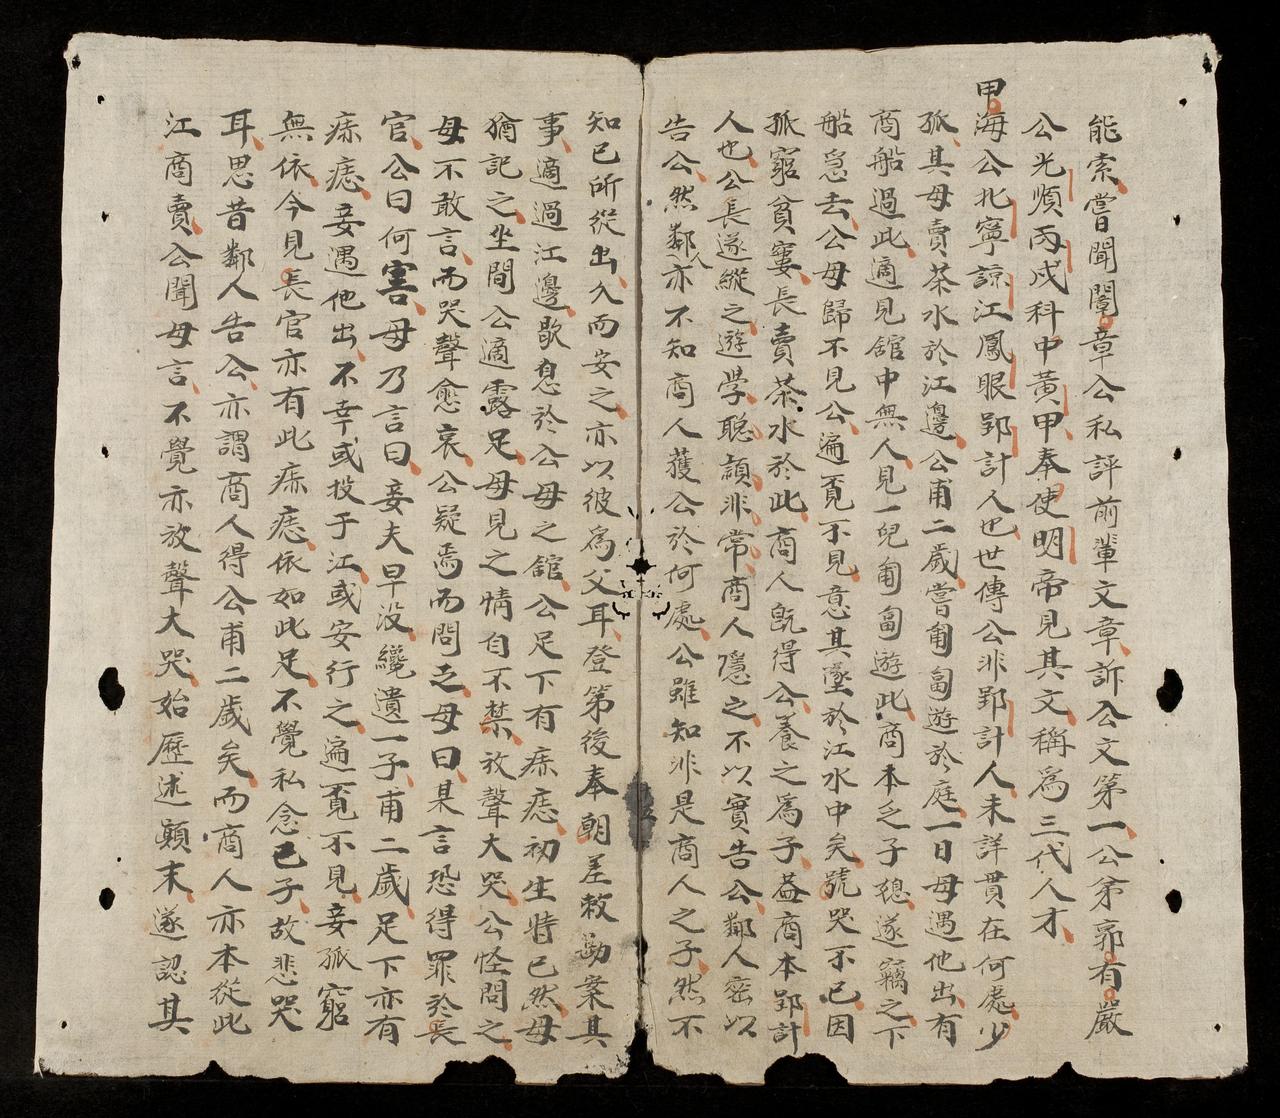 能索嘗聞闍章公私評前輩文章訴公文第一公第郭有嚴
公光順丙戌科中黃甲奉使明帝見其文稱為三代人才
甲海公北寧諒江鳳眼郢計人也世傳公非郢計人未詳貫在何處少
孤其母賣茶水於江邊公甫二歲嘗匍匐遊於庭一日母遇他出有
商船過此適見舘中無人見一兒匍匐遊此商本乏子穗遂竊之下
船急去公母歸不見公遍覔不見意其墜於江水中矣號哭不已因
孤窮貧窶長賣茶水於此商人旣得公養之為子益商本郢計
人也公長遂縱之遊學聡頴非常商人隱之不以實告公鄰人密以
告公然鄰人亦不知商人獲公於何處公雖知非是商人之子然不
知已所從出久而安之亦以彼為父耳登第後奉朝差敕勘案其
事適過江邊歇息於公母之舘公足下有痳痣初生時已然母
猶記之坐間公適露足母見之情自不禁放聲大哭公怪問之
母不敢言而哭聲愈哀公疑焉而問之母曰某言恐得罪於長
官公曰何害母乃言曰妾夫早没纔遺一子甫二歲足下亦有
痳痣妾遇他出不幸或投于江或安行之遍覔不見妾孤窮
無依今見長官亦有此痳痣依如此足不覺私念己子故悲哭
耳思昔鄰人告公亦謂商人得公甫二歲矣而商人亦本從此
江商賣公聞母言不覺亦放聲大哭始歷述顛末遂認其